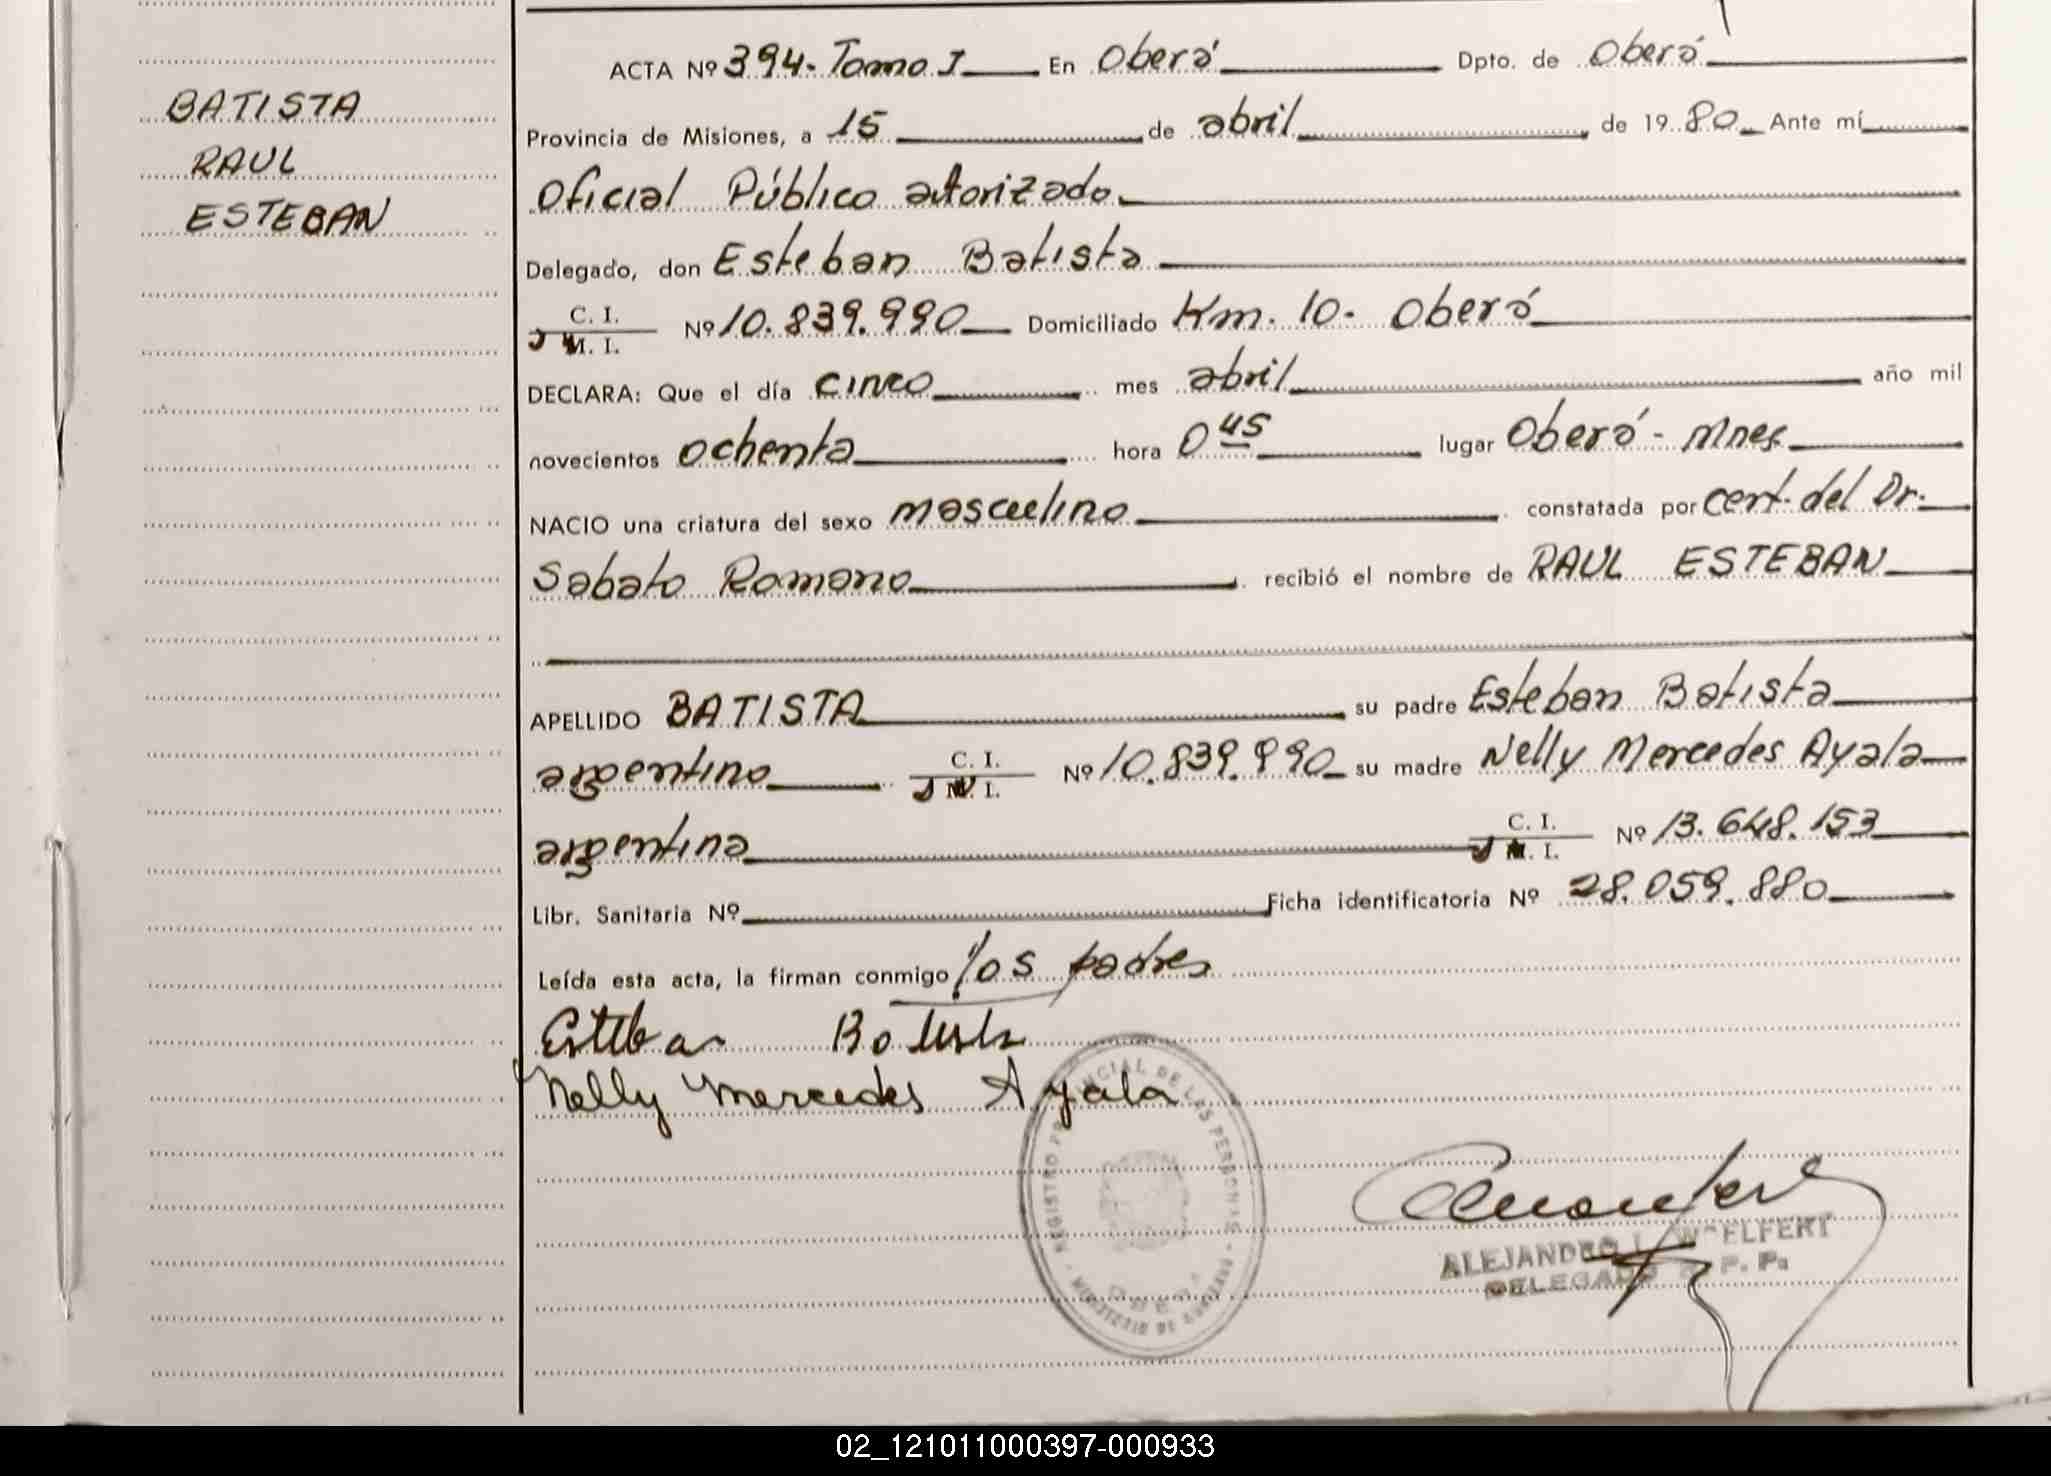 BATISTA
RAUL
ESTEBAN
ACTA Nº 394- Tomo I En Oberá Dpto. de Oberá
Provincia de Misiones, a 15 de abril de 1980 Ante mí
Oficial Público autorizado
Delegado, don Esteban Batista
C. I.
M. I.
Nº 10.839.990 Domiciliado Km. 10- Oberá
DECLARA: Que el día cinco mes abril año mil
novecientos ochenta hora 0 45 lugar Oberá - Mnes.
NACIO una criatura del sexo masculino constatada por cert. del Dr.
Sabato Romano recibió el nombre de RAUL ESTEBAN
APELLIDO BATISTA su padre Esteban Batista
argentino C. I. M. I. Nº 10.839.990 su madre Nelly Mercedes Ayala
argentina C. I. M. I. Nº 13.648.153
Libr. Sanitaria Nº Ficha identificatoria Nº 28.059.880
Leída esta acta, la firman conmigo los padres
Esteban Batista
Nelly Mercedes Ayala
REGISTRO PROVINCIAL DE LAS PERSONAS
ALEJANDRO L. WOELFERT
DELEGADO R. P. P.
02_121011000397-000933